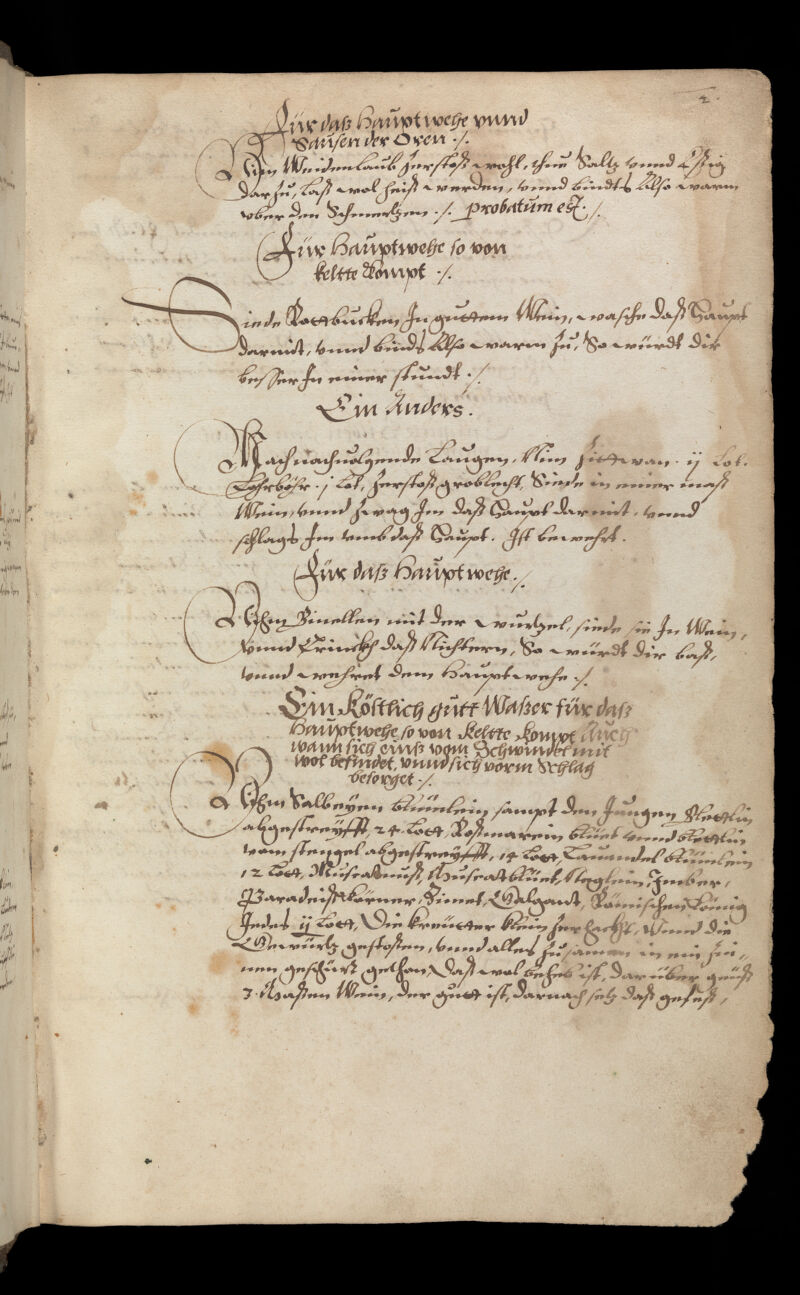 2.
Für daß Hauptwehe vnnd
Sausen der Oren ./.
Nim Weidenlaub Zerstoß wohl, thue Saltz vnnd Essig
darzu, laß wol heiß werden, vnnd bindts Also warm
vber den Schmertzen ./. probatum est ./.
Für Hauptwehe so von
keltte kompt ./.
Siede Rottbucken In guttem Wein, wasche daß Haupt
darmit, vnnd binds Also warm zu, So würdt dir
besser In einer stundt ./.
Ein Anders.
Mach nachuolgende Laugen, Nim Zittwan ij Lot.
Lohrböhr j Lot, Zerstoß groblecht, Siede in einer maß
Wein, vnnd zwag Im daß Haupt darmit, vnnd
schlags Im vmb daß Haupt. Ist bewehrt.
Für daß Hauptwehe ./.
Nehm Binellen mit der wurtzel, siede sie In Wein,
vnnd Trinckh daß Nichtern, So würdt dir baß,
vnnd wehret dem Hauptwehe ./.
Ein Köstlich gutt Waßer für daß
Hauptwehe, so von Keltte kompt Auch
wann sich einß vom Schwindel nit
wol befindet, vnnd sich vorm Schlag
besorget ./.
Nehm Salbeyen blüenlein sampt den Jungen Blettlin
abgestreyfft, 24. Lott, Roßmarein blüet vnnd blettlin
vom stengel abgestreyfft, 14 Lott, Lauendel blüenlein
12 Lott, Muscatnuß, Muscatblüet, Neglein, Imber,
Paradeißkörner, Zimet, Galgant, Römischen Kümig
Jedes ij Lott, Die kreutter klein zerhackht, Vnnd die
Gewürtz gestossen, vnnd alles zusamen in ein Zin¬
nen geschürr gethon, daß wol beheb ist, darüber geüß
3. Massen Wein, der gutt ist, darnach setz daß geseß,